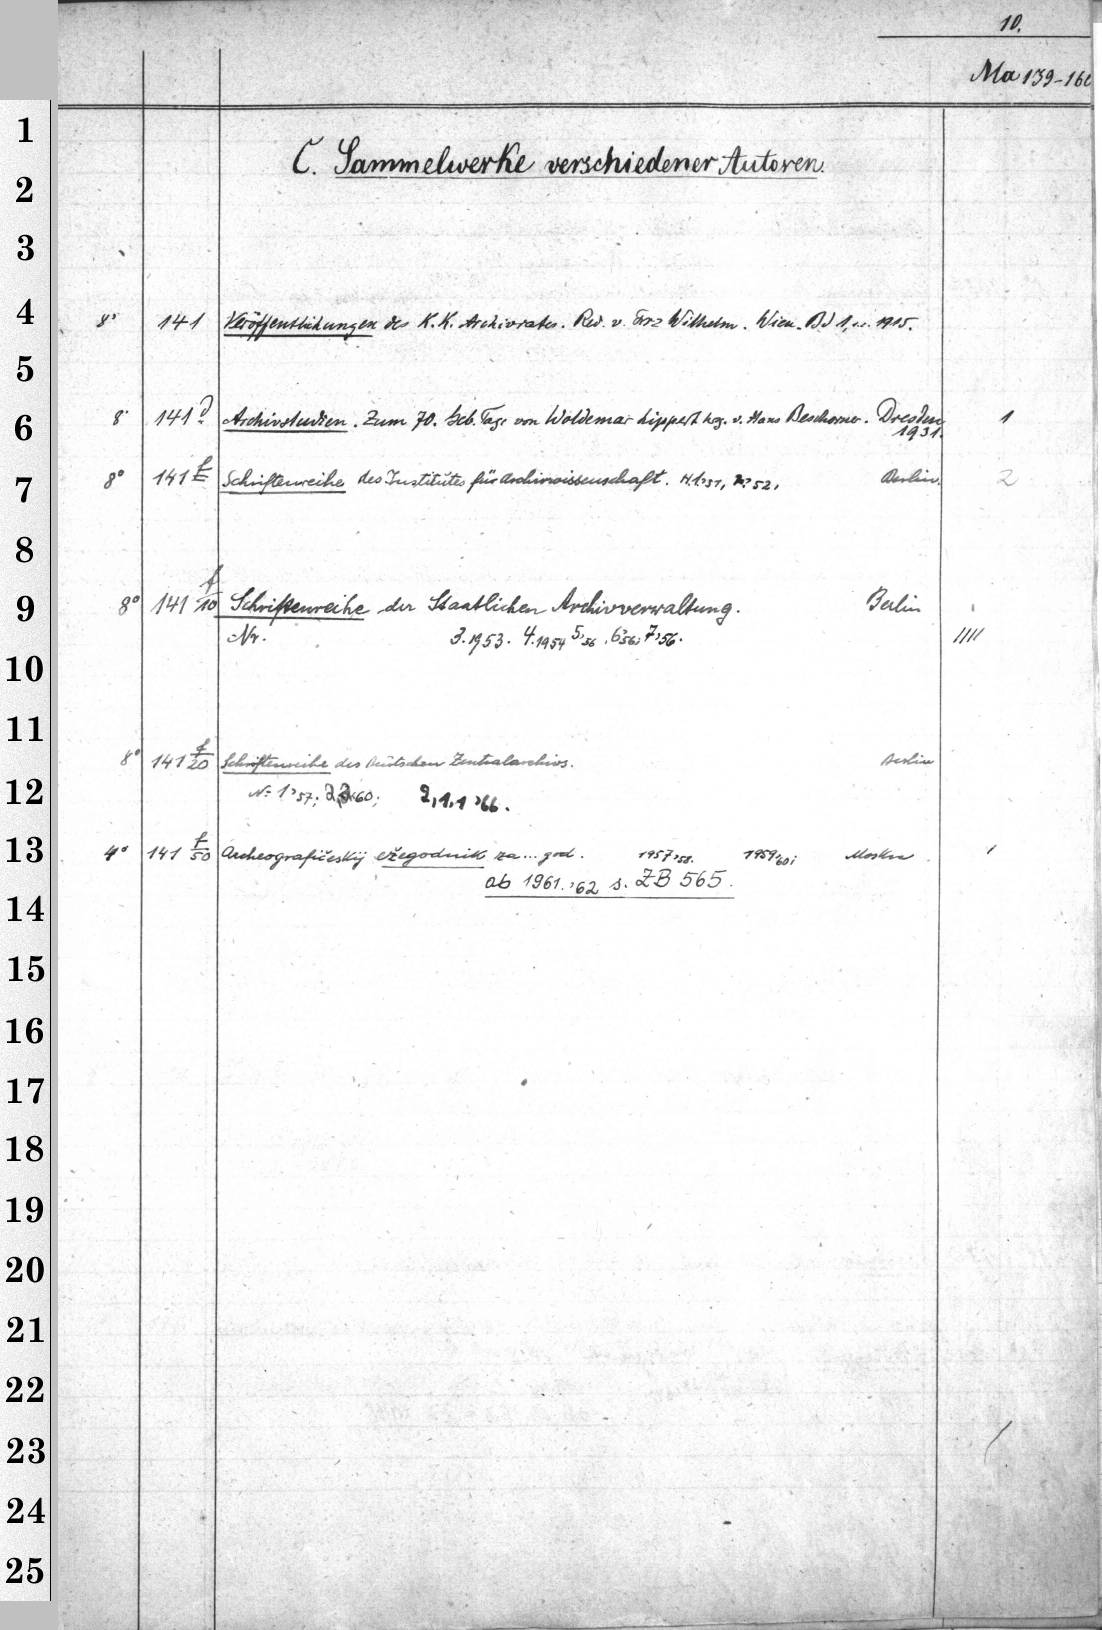 10.
Ma 139-160
C. Sammelwerke verschiedener Autoren.
8° 141 Veröffentlichungen des K.K. Archivrates. Red. v. Frz Wilhelm. Wien. Bd 1, ... 1915.
8° 141 d Archivstudien. Zum 70. Geb. Tage von Woldemar Lippert hrg. v. Hans Beschorner. Dresden 1931. 1
8° 141 f Schriftenreihe des Institutes für Archivwissenschaft. H.1,'51, 2,'52, Berlin. 2
8° 141 f/10 Schriftenreihe der Staatlichen Archivverwaltung. Berlin
Nr. 3.1953. 4.1954 5,'56, 6,'56; 7,'56. ||||
8° 141 f/20 Schriftenreihe des Deutschen Zentralarchivs. Berlin
Nr 1,'57; 2,'60; 2,1.1,'66.
4° 141 f/50 Archeografičeskij ežegodnik za... god. 1957,'58. 1959,'60; Moskva
ab 1961,'62 s. ZB 565.
1
2
3
4
5
6
7
8
9
10
11
12
13
14
15
16
17
18
19
20
21
22
23
24
25